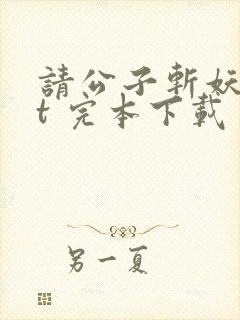 請公子斬妖
t 完本下載
另一夏